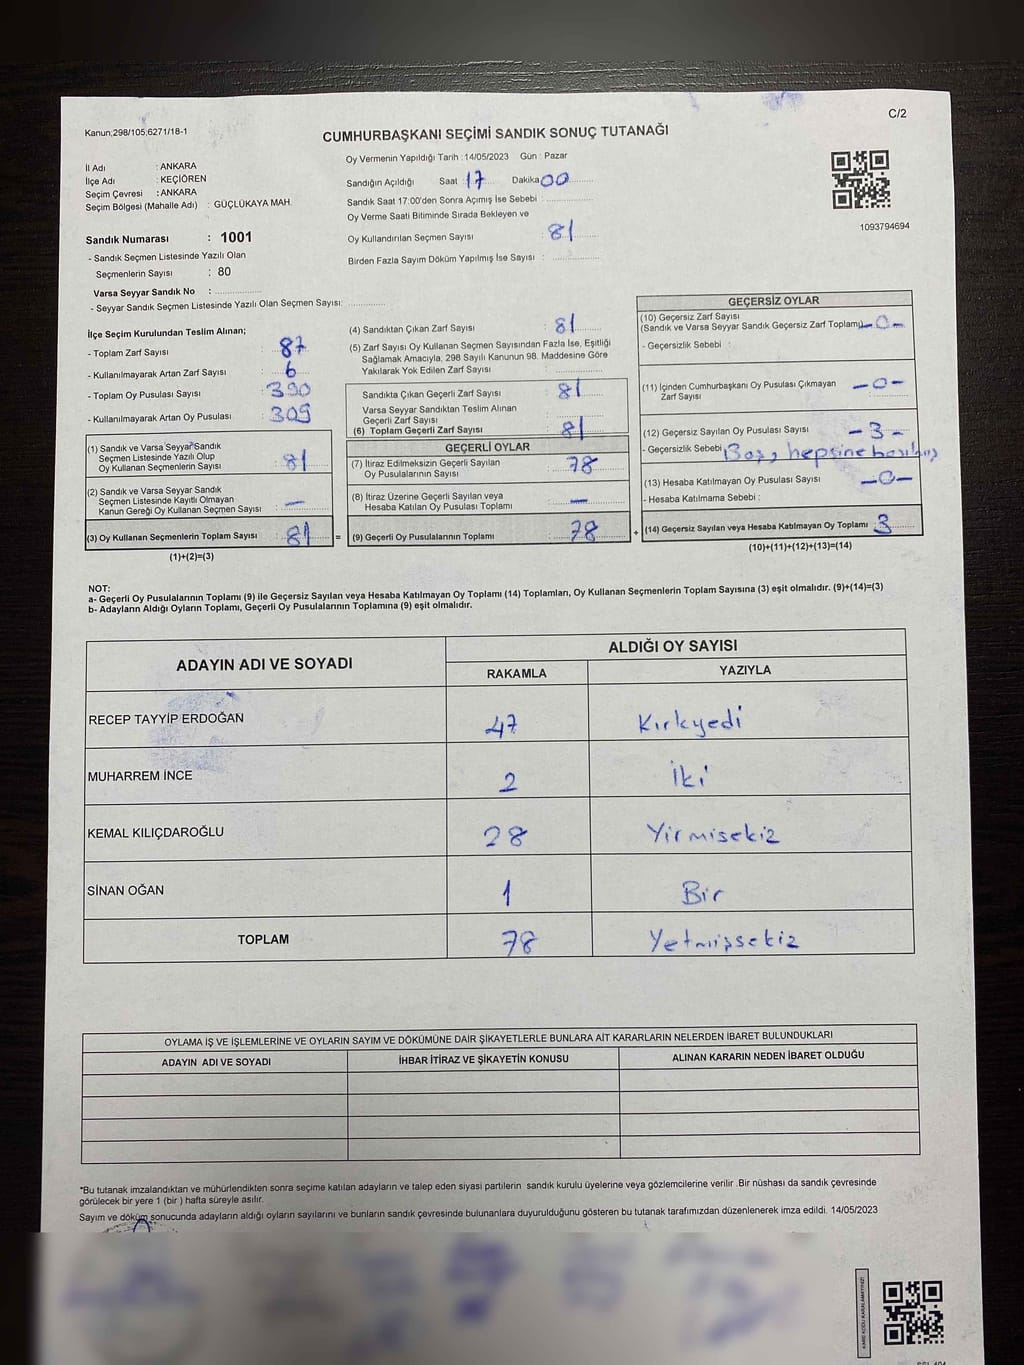 C/2
Kanun;298/105;6271/18-1
CUMHURBAŞKANI SEÇİMİ SANDIK SONUÇ TUTANAĞI
İl Adı : ANKARA
İlçe Adı : KEÇİÖREN
Seçim Çevresi : ANKARA
Seçim Bölgesi (Mahalle Adı) : GÜÇLÜKAYA MAH.
Sandık Numarası : 1001
- Sandık Seçmen Listesinde Yazılı Olan
Seçmenlerin Sayısı : 80
Varsa Seyyar Sandık No :
- Seyyar Sandık Seçmen Listesinde Yazılı Olan Seçmen Sayısı:
Oy Vermenin Yapıldığı Tarih :14/05/2023 Gün : Pazar
Sandığın Açıldığı Saat 17 Dakika 00
Sandık Saat 17:00'den Sonra Açımış İse Sebebi :
Oy Verme Saati Bitiminde Sırada Bekleyen ve
Oy Kullandırılan Seçmen Sayısı : 81
Birden Fazla Sayım Döküm Yapılmış İse Sayısı :
1093794694
İlçe Seçim Kurulundan Teslim Alınan;
- Toplam Zarf Sayısı : 87
- Kullanılmayarak Artan Zarf Sayısı : 6
- Toplam Oy Pusulası Sayısı : 390
- Kullanılmayarak Artan Oy Pusulası : 309
(1) Sandık ve Varsa Seyyar Sandık
Seçmen Listesinde Yazılı Olup
Oy Kullanan Seçmenlerin Sayısı : 81
(2) Sandık ve Varsa Seyyar Sandık
Seçmen Listesinde Kayıtlı Olmayan
Kanun Gereği Oy Kullanan Seçmen Sayısı : —
(3) Oy Kullanan Seçmenlerin Toplam Sayısı : 81 =
(1)+(2)=(3)
(4) Sandıktan Çıkan Zarf Sayısı : 81
(5) Zarf Sayısı Oy Kullanan Seçmen Sayısından Fazla İse, Eşitliği
Sağlamak Amacıyla, 298 Sayılı Kanunun 98. Maddesine Göre
Yakılarak Yok Edilen Zarf Sayısı :
Sandıkta Çıkan Geçerli Zarf Sayısı : 81
Varsa Seyyar Sandıktan Teslim Alınan
Geçerli Zarf Sayısı :
(6) Toplam Geçerli Zarf Sayısı : 81
GEÇERLİ OYLAR
(7) İtiraz Edilmeksizin Geçerli Sayılan
Oy Pusulalarının Sayısı : 78
(8) İtiraz Üzerine Geçerli Sayılan veya
Hesaba Katılan Oy Pusulası Toplamı : —
(9) Geçerli Oy Pusulalarının Toplamı : 78 +
GEÇERSİZ OYLAR
(10) Geçersiz Zarf Sayısı
(Sandık ve Varsa Seyyar Sandık Geçersiz Zarf Toplamı) -0-
- Geçersizlik Sebebi :
(11) İçinden Cumhurbaşkanı Oy Pusulası Çıkmayan
Zarf Sayısı -0-
(12) Geçersiz Sayılan Oy Pusulası Sayısı -3-
- Geçersizlik Sebebi Boş, hepsine basılmış
(13) Hesaba Katılmayan Oy Pusulası Sayısı -0-
- Hesaba Katılmama Sebebi :
(14) Geçersiz Sayılan veya Hesaba Katılmayan Oy Toplamı 3
(10)+(11)+(12)+(13)=(14)
NOT:
a- Geçerli Oy Pusulalarının Toplamı (9) ile Geçersiz Sayılan veya Hesaba Katılmayan Oy Toplamı (14) Toplamları, Oy Kullanan Seçmenlerin Toplam Sayısına (3) eşit olmalıdır. (9)+(14)=(3)
b- Adayların Aldığı Oyların Toplamı, Geçerli Oy Pusulalarının Toplamına (9) eşit olmalıdır.
ADAYIN ADI VE SOYADI
ALDIĞI OY SAYISI
RAKAMLA YAZIYLA
RECEP TAYYİP ERDOĞAN 47 Kırkyedi
MUHARREM İNCE 2 İki
KEMAL KILIÇDAROĞLU 28 Yirmisekiz
SİNAN OĞAN 1 Bir
TOPLAM 78 Yetmişsekiz
OYLAMA İŞ VE İŞLEMLERİNE VE OYLARIN SAYIM VE DÖKÜMÜNE DAİR ŞİKAYETLERLE BUNLARA AİT KARARLARIN NELERDEN İBARET BULUNDUKLARI
ADAYIN ADI VE SOYADI İHBAR İTİRAZ VE ŞİKAYETİN KONUSU ALINAN KARARIN NEDEN İBARET OLDUĞU
*Bu tutanak imzalandıktan ve mühürlendikten sonra seçime katılan adayların ve talep eden siyasi partilerin sandık kurulu üyelerine veya gözlemcilerine verilir .Bir nüshası da sandık çevresinde
görülecek bir yere 1 (bir ) hafta süreyle asılır.
Sayım ve döküm sonucunda adayların aldığı oyların sayılarını ve bunların sandık çevresinde bulunanlara duyurulduğunu gösteren bu tutanak tarafımızdan düzenlenerek imza edildi. 14/05/2023
KARE KODU KARALAMAYINIZ!